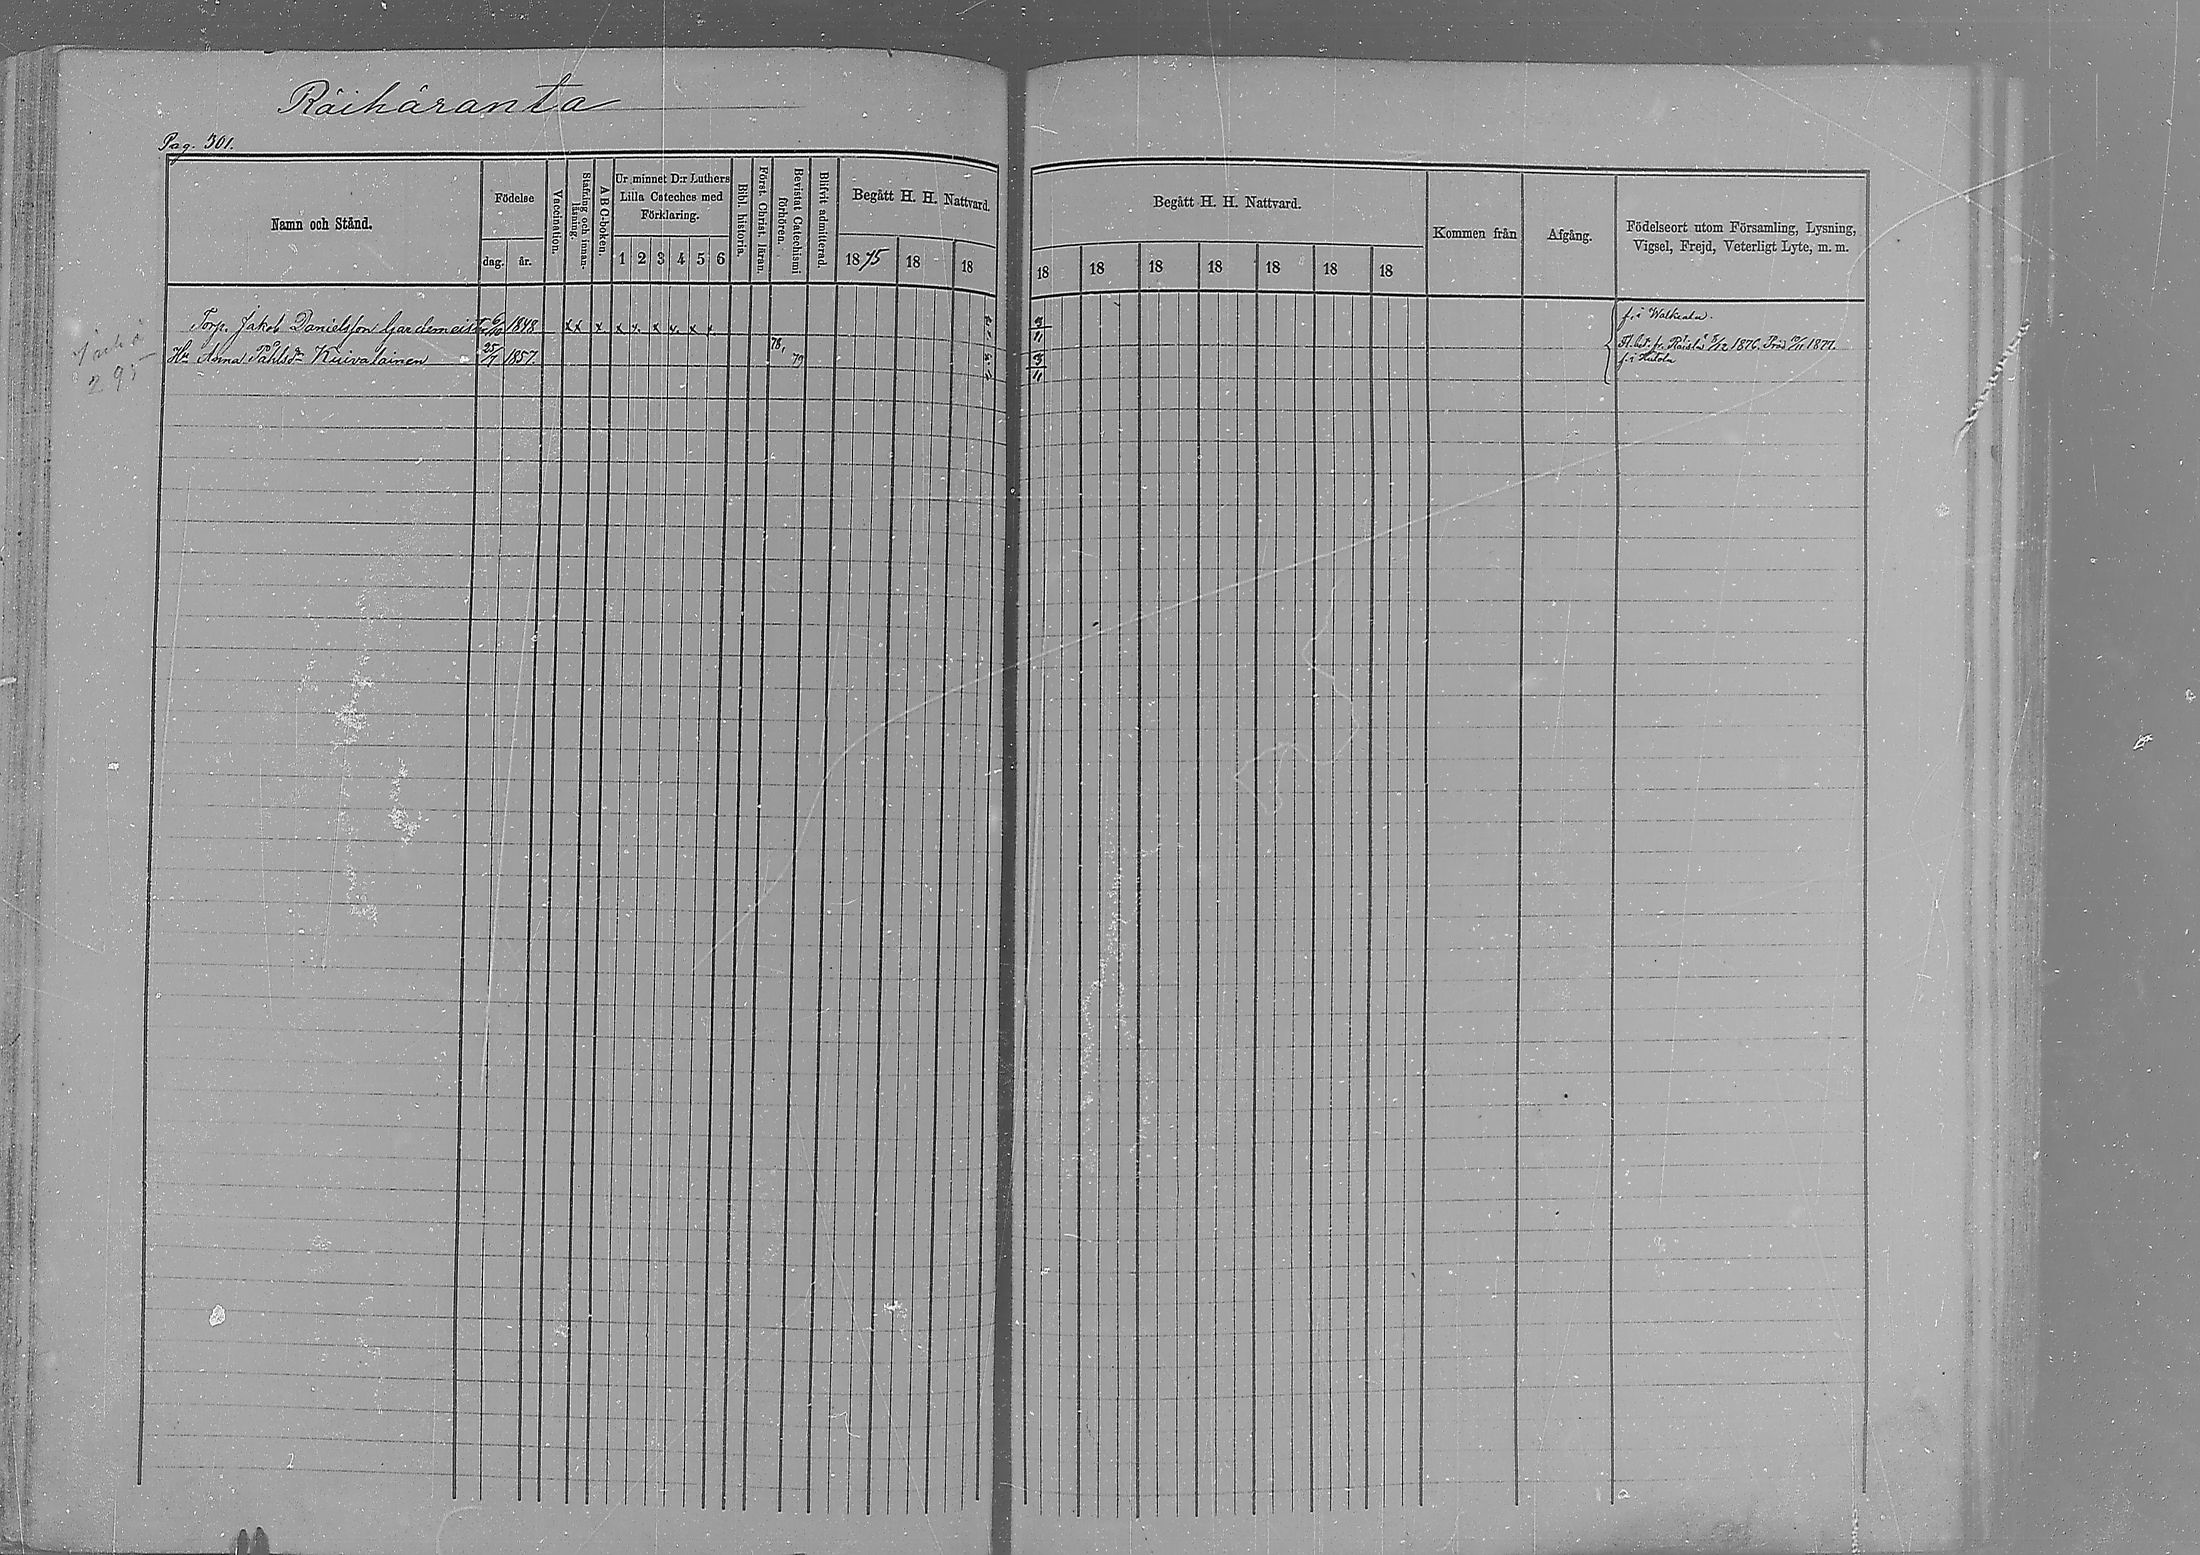 Räihäranta
Pag. 301.
Namn och Stånd.
Födelse
dag. år.
Vaccination.
Stafning och innan-
läsning.
ABC-boken.
Ur minnet D:r Luthers
Lilla Cateches med
Förklaring.
1 2 3 4 5 6
Bibl. historia.
Först. Christ. läran.
Bevistat Catechismi
förhören.
Blifvit admitterad.
Begått H. H. Nattvard.
1875 18 18
Begått H. H. Nattvard.
18 18 18 18 18 18 18
Kommen från
Afgång.
Födelseort utom Församling, Lysning,
Vigsel, Frejd, Veterligt Lyte, m. m.
Torp. Jakob Danielsson Gardemeister 6/10 1848 x x x x x x x x x f. i Walkeala.
78,
Hu Anna Påhlsdr Kuivalainen 25/7 1857. 79
1876. 1877.
f. i Hiitola
295